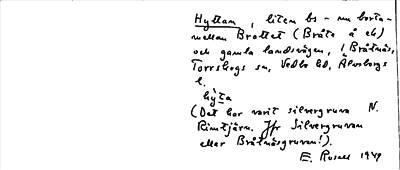 Hyttan, liten bs – nu borta –
mellan Brottet (Bråte å ek)
och gamla landsvägen, i Bråtnäs,
Torrskogs sn, Vedbo hd, Älvsborgs
l.
hyta
(Det har varit silvergruva N.
Rimtjärn. Jfr Silvergruvan
eller Bråtnäsgruvan!).
E. Rosell 1949